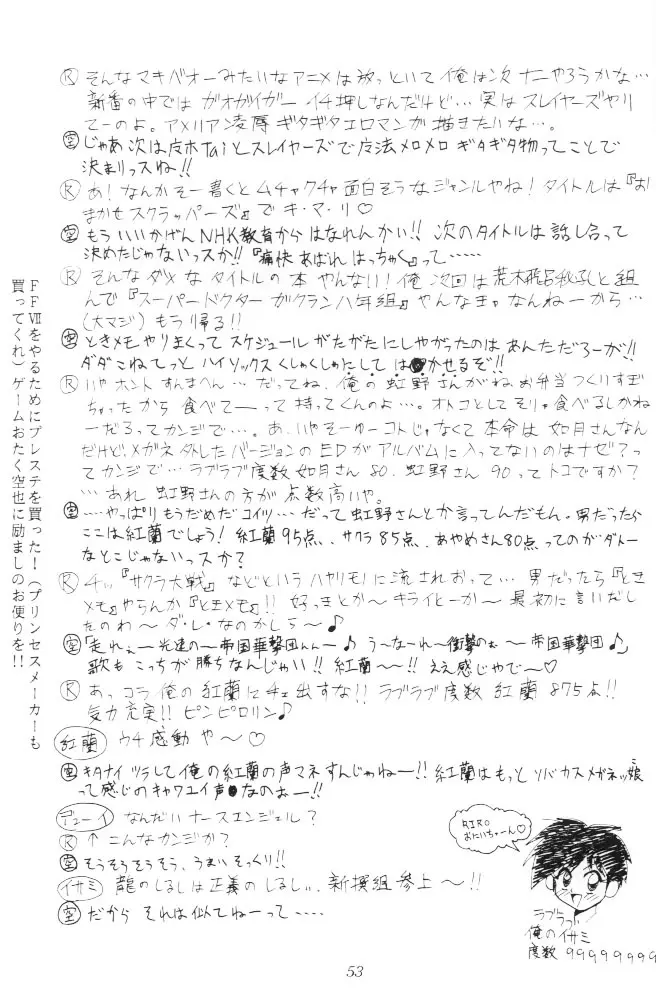 Ⓡそんなマキバオーみたいなアニメは放っといて俺は次ナニやろうかな…
新番の中ではガオガイガーイチ押しなんだけど…実はスレイヤーズやり
てーのよ。アメリアン凌辱ギタギタエロマンが描きたいな…。
㊢じゃあ次は皮ホTaiとスレイヤーズで魔法メロメロギタギタ物ってことで
決まりっスね!!
Ⓡあ!なんかそー書くとムチャクチャ面白そうなジャンルやね!タイトルは『お
まかせスクラッパーズ』でキ・マ・リ♡
もういいかげんNHK教育からはなれんかい!!次のタイトルは話し合って
決めたじゃないっスか!!『痛快あばれはっちゃく』って……
Ⓡそんなダメなタイトルの本やんない!俺次回は荒木飛呂秋孔と組
んで『スーパードクターがクラン八年組』やんなきゃなんねーから…
(大マジ)もう帰る!!
ときメモやりまくってスケジュールがたがたにしやがったのはあんただろーが!!
ダダこねてっとハイソックスくしゃくしゃにしてはかせるぞ!!
Ⓡいやホントすんまへん…だってね、俺の虹野さんがねお弁当つくりすぎ
ちゃったから食べてーって持ってくんのよ…。オトコとしてそりゃ食べるしかね
ーだろってカンジで…。あ、いやそーゆーコトじゃなくて本命は如月さんなん
だけど、メガネ外したバージョンのEDがアルバムに入ってないのはナゼ?っ
てカンジで…ラブラブ度数如月さん80.虹野さん90ってトコですか?
…あれ虹野さんの方が点数高いや。
……やっぱりもうだめだコイツ…だって虹野さんとか言ってんだもん。男だったら
ここは紅蘭でしょう!紅蘭95点、サクラ85点、あやめさん80点ってのがダトー
なとこじゃないっスか?
Ⓡ4ぃ『サクラ大戦』などというハヤリモノに流されおって…男だったら『とき
メモ』やらんか『ときメモ』!!好っきとか〜キライとーか〜最初に言いだし
たのわ〜ダ・レ・なのかしら〜♪
「走れぇー光速の〜帝国華撃団んんー♪う〜なーれ〜衝撃のぉ〜帝国華撃団♪」
歌もこっちが勝ちなんじゃい!!紅蘭〜〜!!ええ感じやで〜♡
Ⓡあっコラ俺の紅蘭にチェ出すな!!ラブラブ度数紅蘭875点!!
気力充実!!ピンピロリン♪
紅蘭 ウチ感動や〜♡
キタナイツラして俺の紅蘭の声マネすんじゃねー!!紅蘭はもっとソバカスメガネッ娘
って感じのキャワエイ声なのぉー!!
デューイ なんだいナースエンジェル?
Ⓡ↑こんなカンジか?
そうそうそうそう、うまいそっくり!!
イサミ 龍のしるしは正義のしるしぃ、新撰組参上〜!!
だからそれは似てねーって……
FFⅦをやるためにプレステを買った!(プリンセスメーカーも
買ってくれ)ゲームおたく空也に励ましのお便りを!!
RIRO
おたいちゃーん♡
ラブラブ
俺のイサミ
度数999999999
53